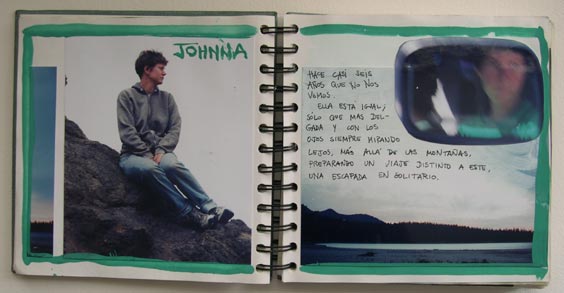 JOHNNA
HACE CASI SEIS
AÑOS QUE NO NOS
VEMOS.
ELLA ESTÁ IGUAL;
SÓLO QUE MÁS DEL-
GADA Y CON LOS
OJOS SIEMPRE MIRANDO
LEJOS, MÁS ALLÁ DE LAS MONTAÑAS,
PREPARANDO UN VIAJE DISTINTO A ESTE,
UNA ESCAPADA EN SOLITARIO.